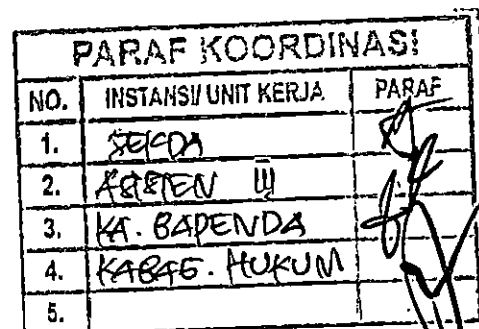 PARAF KOORDINASI
NO. INSTANSI/ UNIT KERJA PARAF
1. SEKDA
2. ASISTEN III
3. KA. BAPENDA
4. KABAG. HUKUM
5.